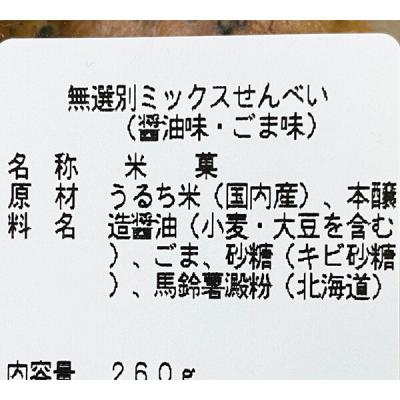 無選別ミックスせんべい
（醤油味・ごま味）
名　称　米　菓
原　材　うるち米（国内産）、本醸
料　名　造醤油（小麦・大豆を含む
）、ごま、砂糖（キビ砂糖
）、馬鈴薯澱粉（北海道）
内容量　２６０ｇ